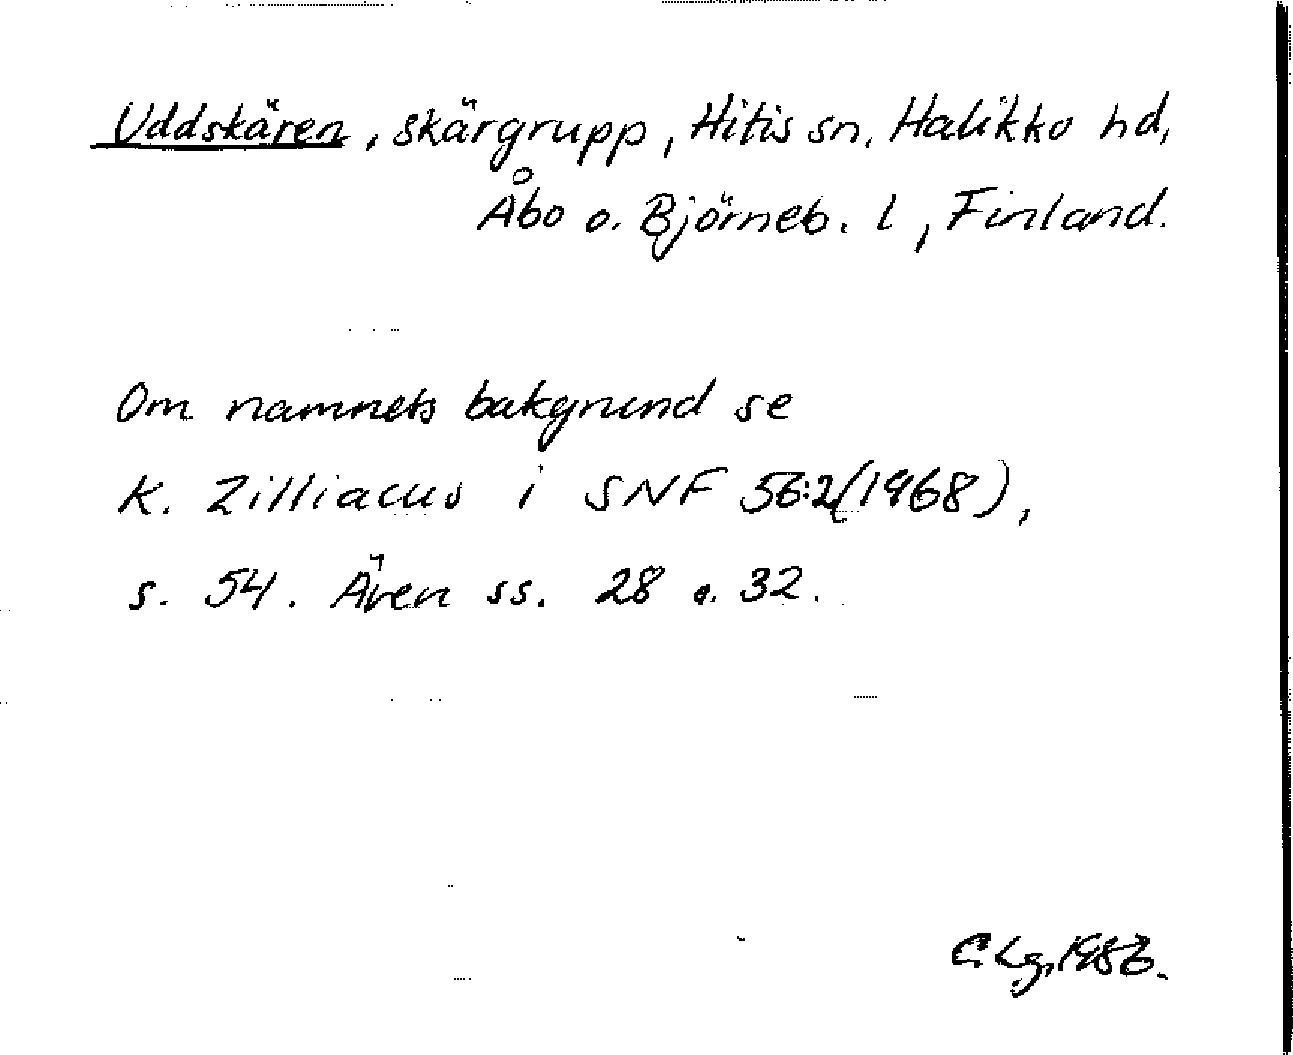 Uddskären, skärgrupp, Hitis sn, Halikko hd,
Åbo o. Björneb. l, Finland.
Om namnets bakgrund se
K. Zilliacus i SNF 56:2(1968),
s. 54. Även ss. 28 o. 32.
C. Lg,